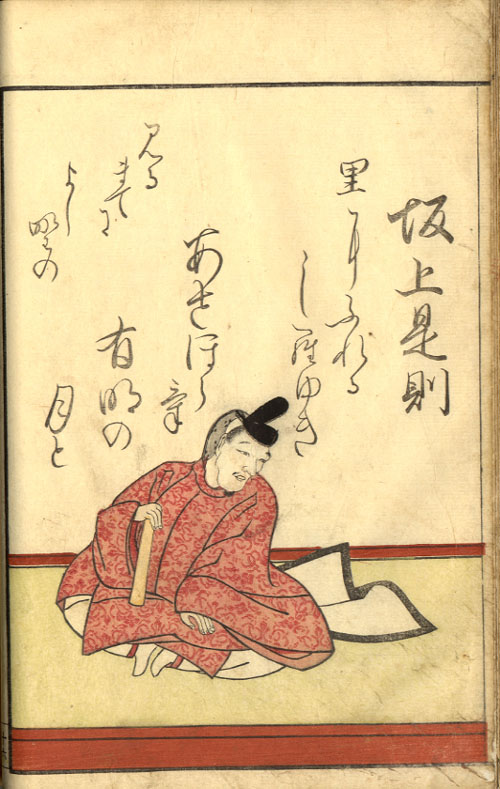 坂上是則
あさほらけ
有明の
月と
みる
まてに
よし
野の
里にふれる
しらゆき